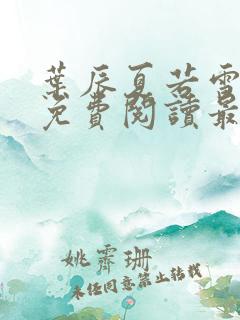 葉辰夏若雪
免費閱讀最
姚霽珊
未經同意禁止轉載